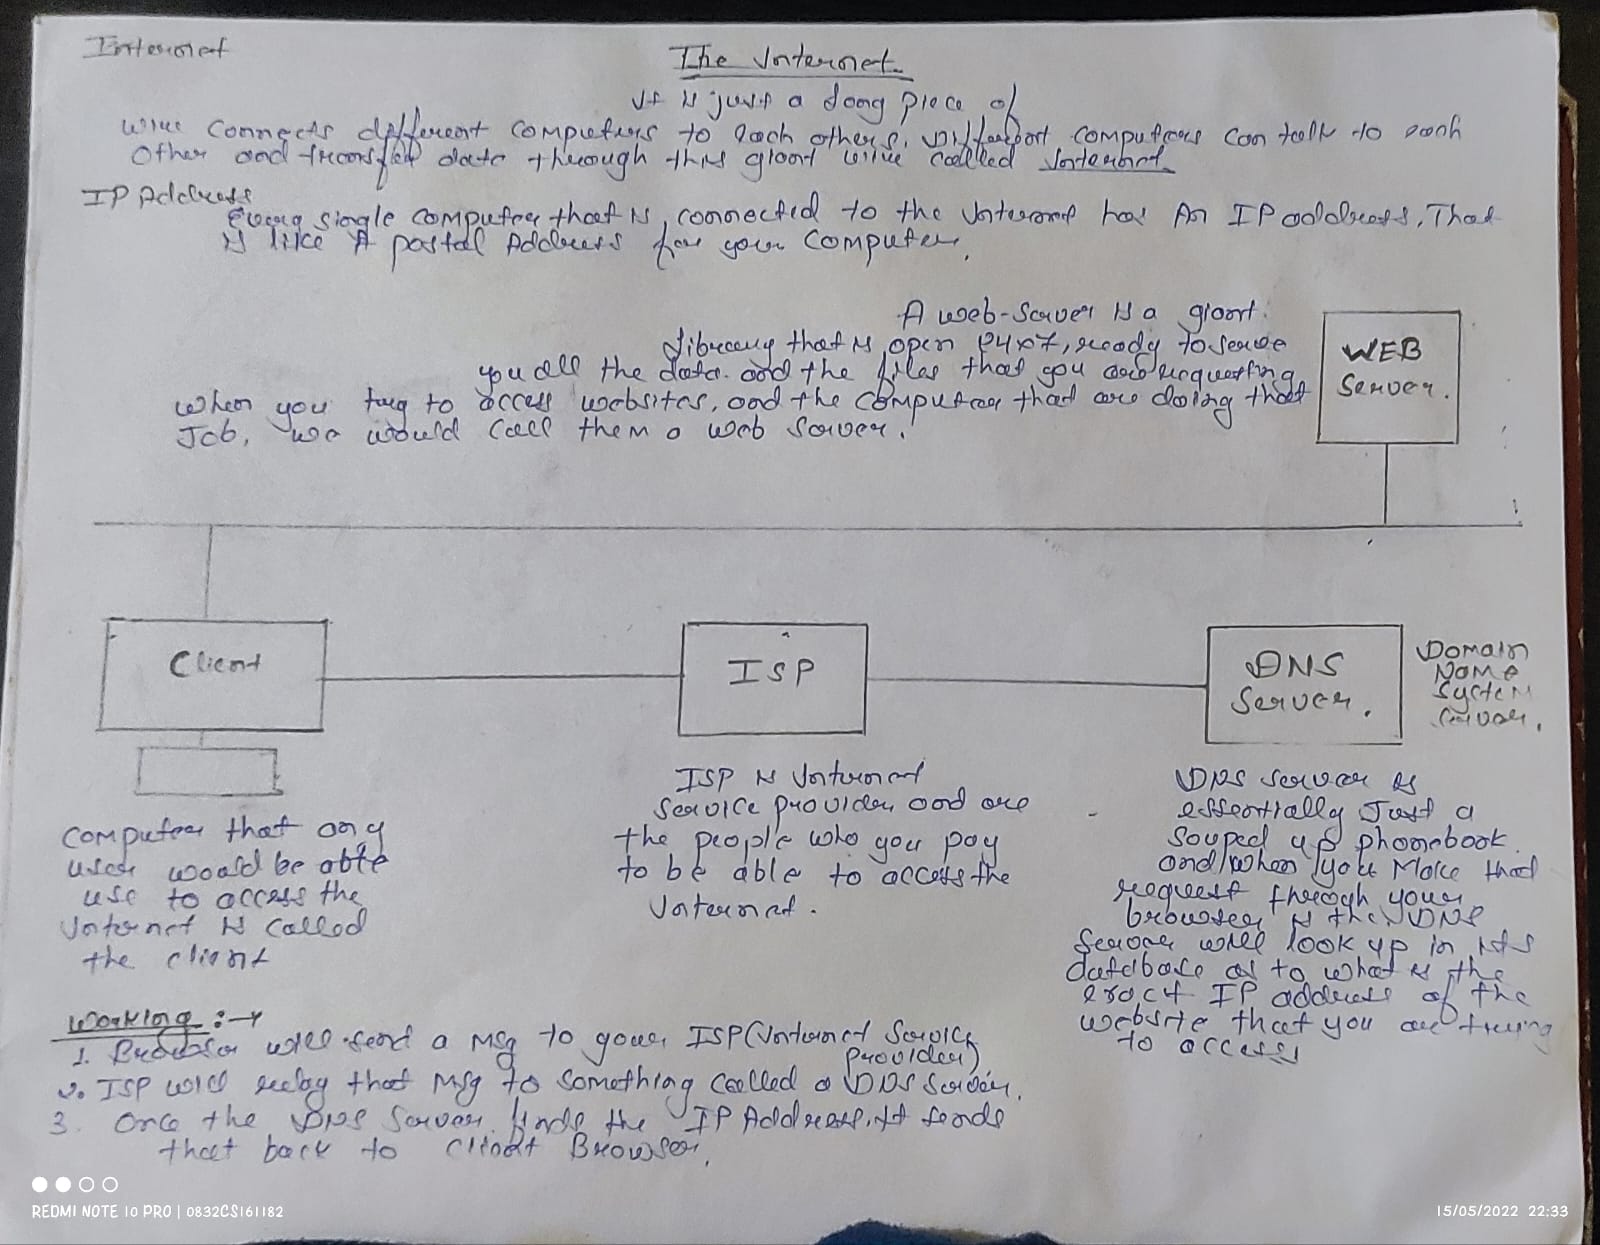 Internet
The Internet
It is just a long piece of
wire connects different computers to each others. Different computers can talk to each
other and transfer data through this giant wire called Internet.
IP Address
Every single computer that is connected to the Internet has An IP address, That
is like A postal Address for your computer.
A web-server is a giant
library that is open 24x7, ready to serve
you all the data and the files that you are requesting
when you try to access websites, and the computer that are doing that
Job, we would call them a web server.
WEB
Server.
Client
ISP
DNS
Server.
Domain
Name
System
Server.
computer that any
user would be able
use to access the
Internet is called
the client
ISP is Internet
service provider and are
the people who you pay
to be able to access the
Internet.
DNS server is
essentially Just a
souped up phonebook
and when you Make that
request through your
browser is the DNS
server will look up in its
database as to what is the
exact IP address of the
website that you are trying
to access
Working :→
1. Browser will send a Msg to your ISP (Internet Service
Provider)
2. ISP will relay that Msg to something called a DNS server.
3. Once the DNS server finds the IP Address, it sends
that back to client Browser.
REDMI NOTE 10 PRO | 0832CS161182
15/05/2022 22:33